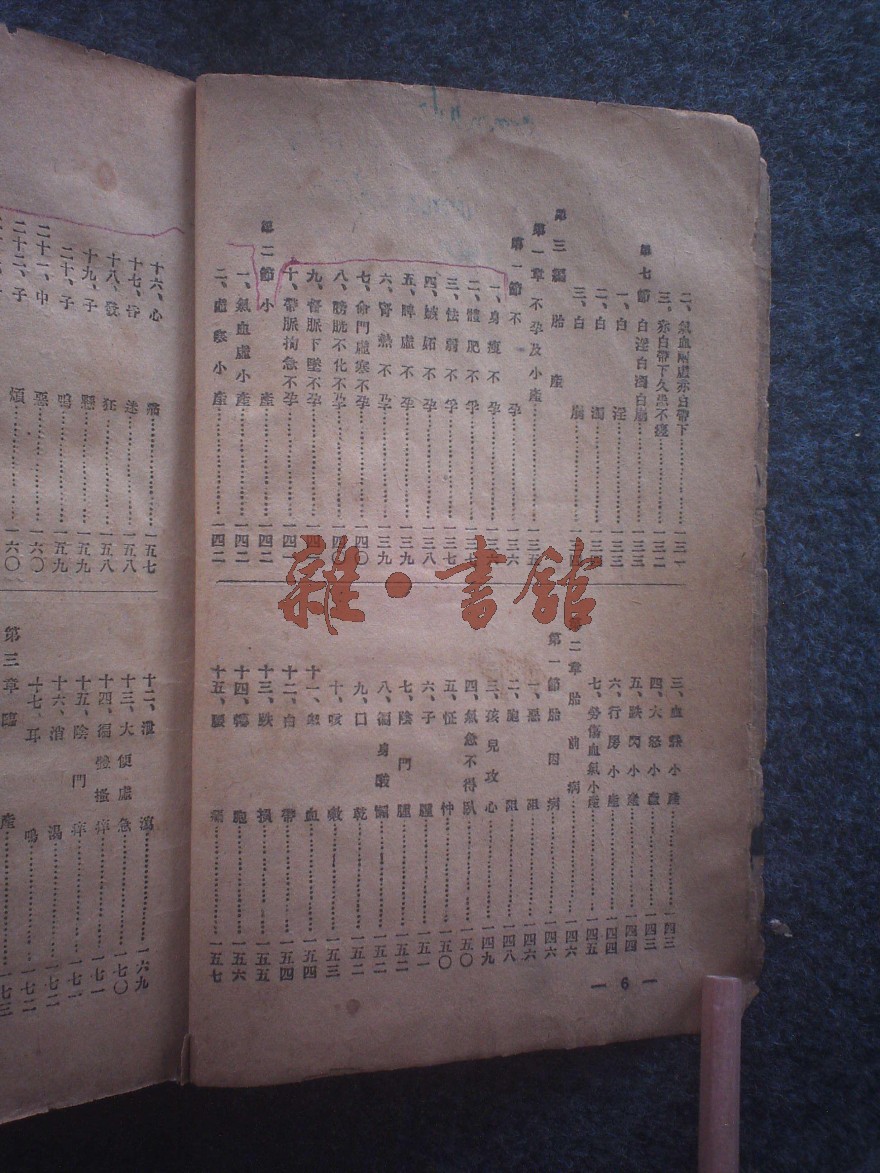 二、氣血兩虛赤白帶下……一三一
三、赤白帶下久患不痊……一三二
第七節 白淫白濁白崩……一三三
一、白淫……一三三
二、白濁……一三
三、白崩……一
第三編 胎產
第一章 不孕及小產……一三五
第一節 不孕……一三六
一、身瘦不孕……一三
二、體肥不孕……一三七
三、怯弱不孕……一三七
四、嫉妬不孕……一三八
五、脾虛不孕……一三九
六、腎熱不孕……一三九
七、命門虛寒不孕……一四〇
八、膀胱不化不孕……一四〇
九、督脈下墜不孕……一四
十、帶脈拘急不孕……一四一
第二節 小產……一四二
一、氣血虛小產……一四二
二、虛寒小產……一四二
三、血熱小產……一四三
四、大怒小產……一四三
五、跌閃小產……一四四
六、行房小產……一四四
七、勞傷血氣小產……一四五
第二章 胎前病……一四六
第一節 胎前因病……一四六
一、惡阻……一四六
二、胞阻……一四八
三、孩兒攻心……一四九
四、氣急不得臥……一五〇
五、怔忡……一五〇
六、子腫……一五一
七、陰門腫……一五二
八、遍身酸懶……一五二
九、口乾……一五二
十、咳嗽……一五三
十一、血……一五四
十二、白帶……一五四
十三、跌損……一五五
十四、胞……一五六
十五、腰痛……一五七
— 6 —
十六、心痛……一五七
十七、昏迷……一五八
十八、發狂……一五八
十九、子懸……一五九
二十、子嗚……一五九
二十一、中惡……一六〇
二十二、子煩……一六〇
十二、泄瀉……一六九
十三、大便虛急……一七〇
十四、遍體搔痒……一七一
十五、陰門痒……一七一
十六、消渴……一七二
十七、耳鳴……一七二
第三章 臨產……一七三
雜·書館